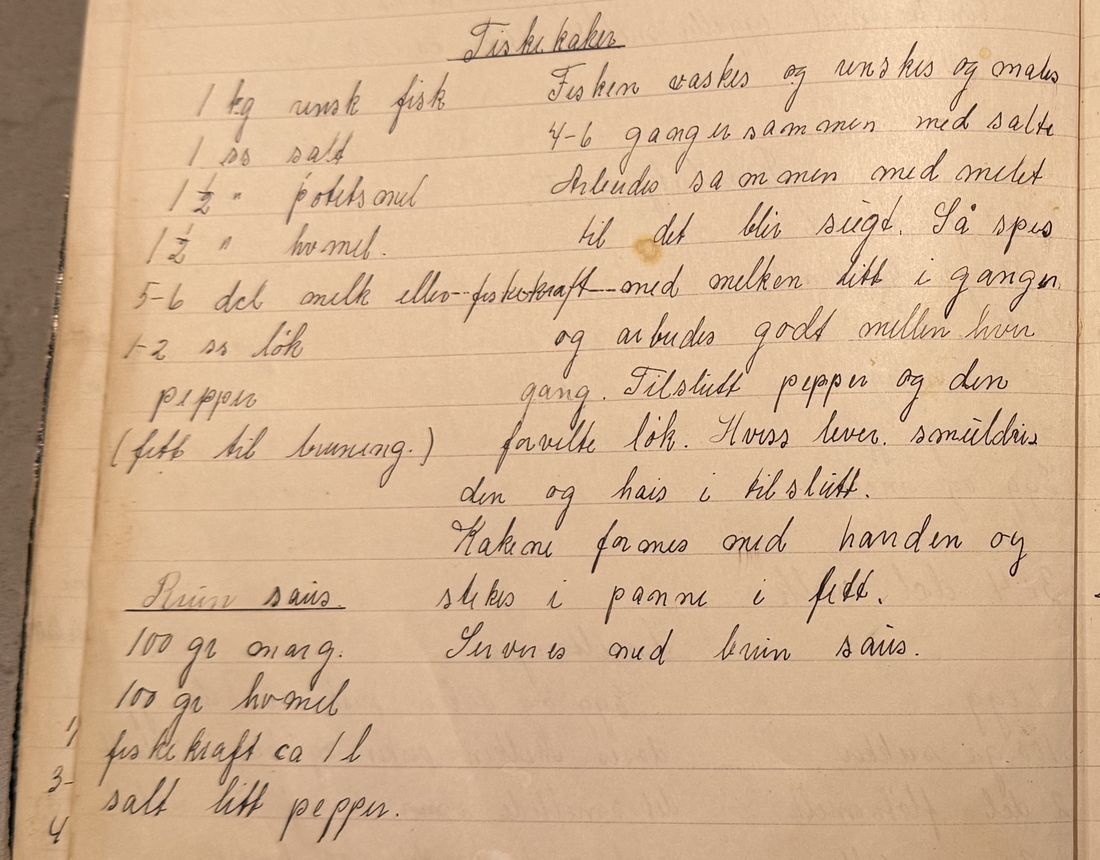 Fiskekaker
1 kg rensk fisk
1 ss salt
1 1/2 " potetsmel
1 1/2 " hvmel.
5-6 del melk eller fiskekraft
1-2 ss løk
pepper
(fett til bruning.)
Fisken vaskes og renskes og males
4-6 ganger sammen med salte
Arbeides sammen med melet
til det blir seigt. Så spes
med melken litt i gangen
og arbeides godt mellen hver
gang. Tilslutt pepper og den
forvelte løk. Hviss lever. smuldris
den og hais i tilslutt.
Kakene formes med handen og
stekes i panne i fett.
Serveres med brun saus.
Brun saus.
100 gr marg.
100 gr hvmel
fiskekraft ca 1 l
salt litt pepper.
1
3-
4